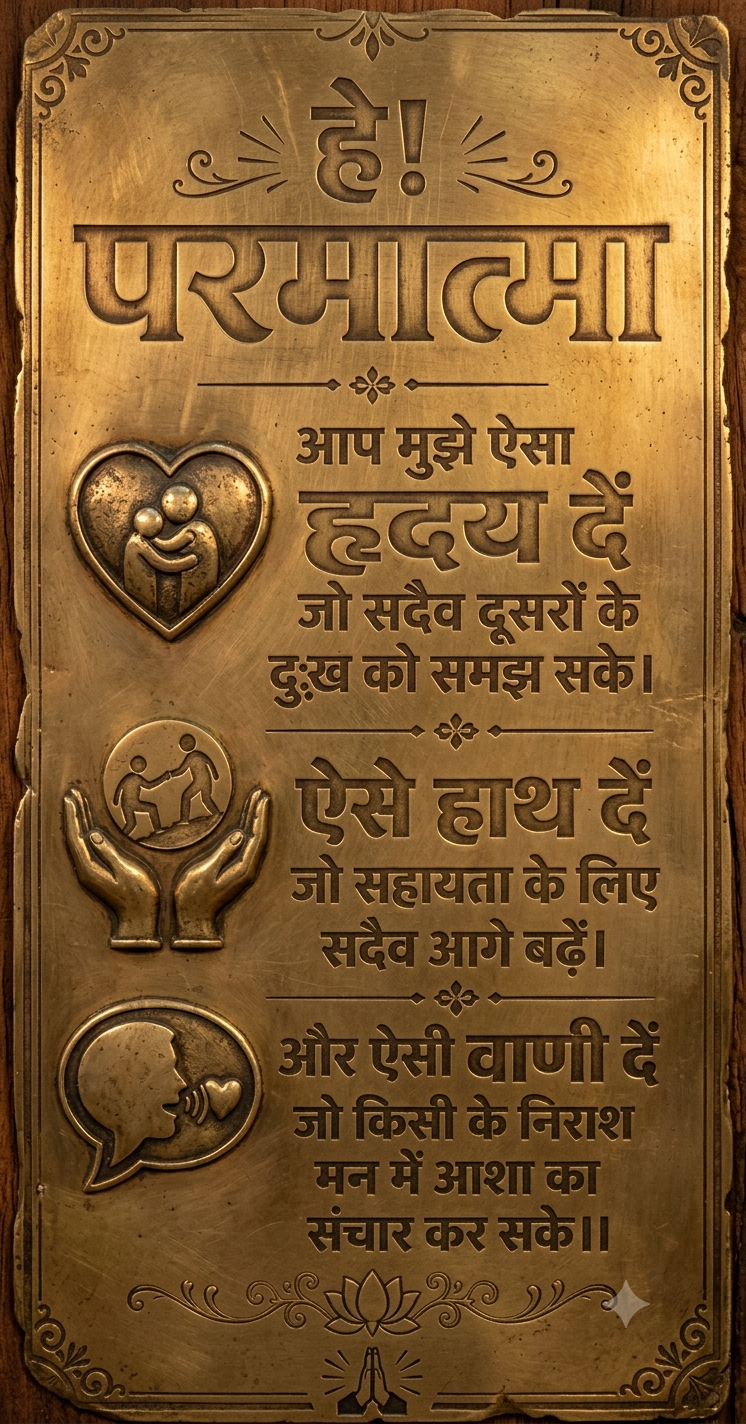 हे!
परमात्मा
आप मुझे ऐसा
हृदय दें
जो सदैव दूसरों के
दुःख को समझ सके।
ऐसे हाथ दें
जो सहायता के लिए
सदैव आगे बढ़ें।
और ऐसी वाणी दें
जो किसी के निराश
मन में आशा का
संचार कर सके।।